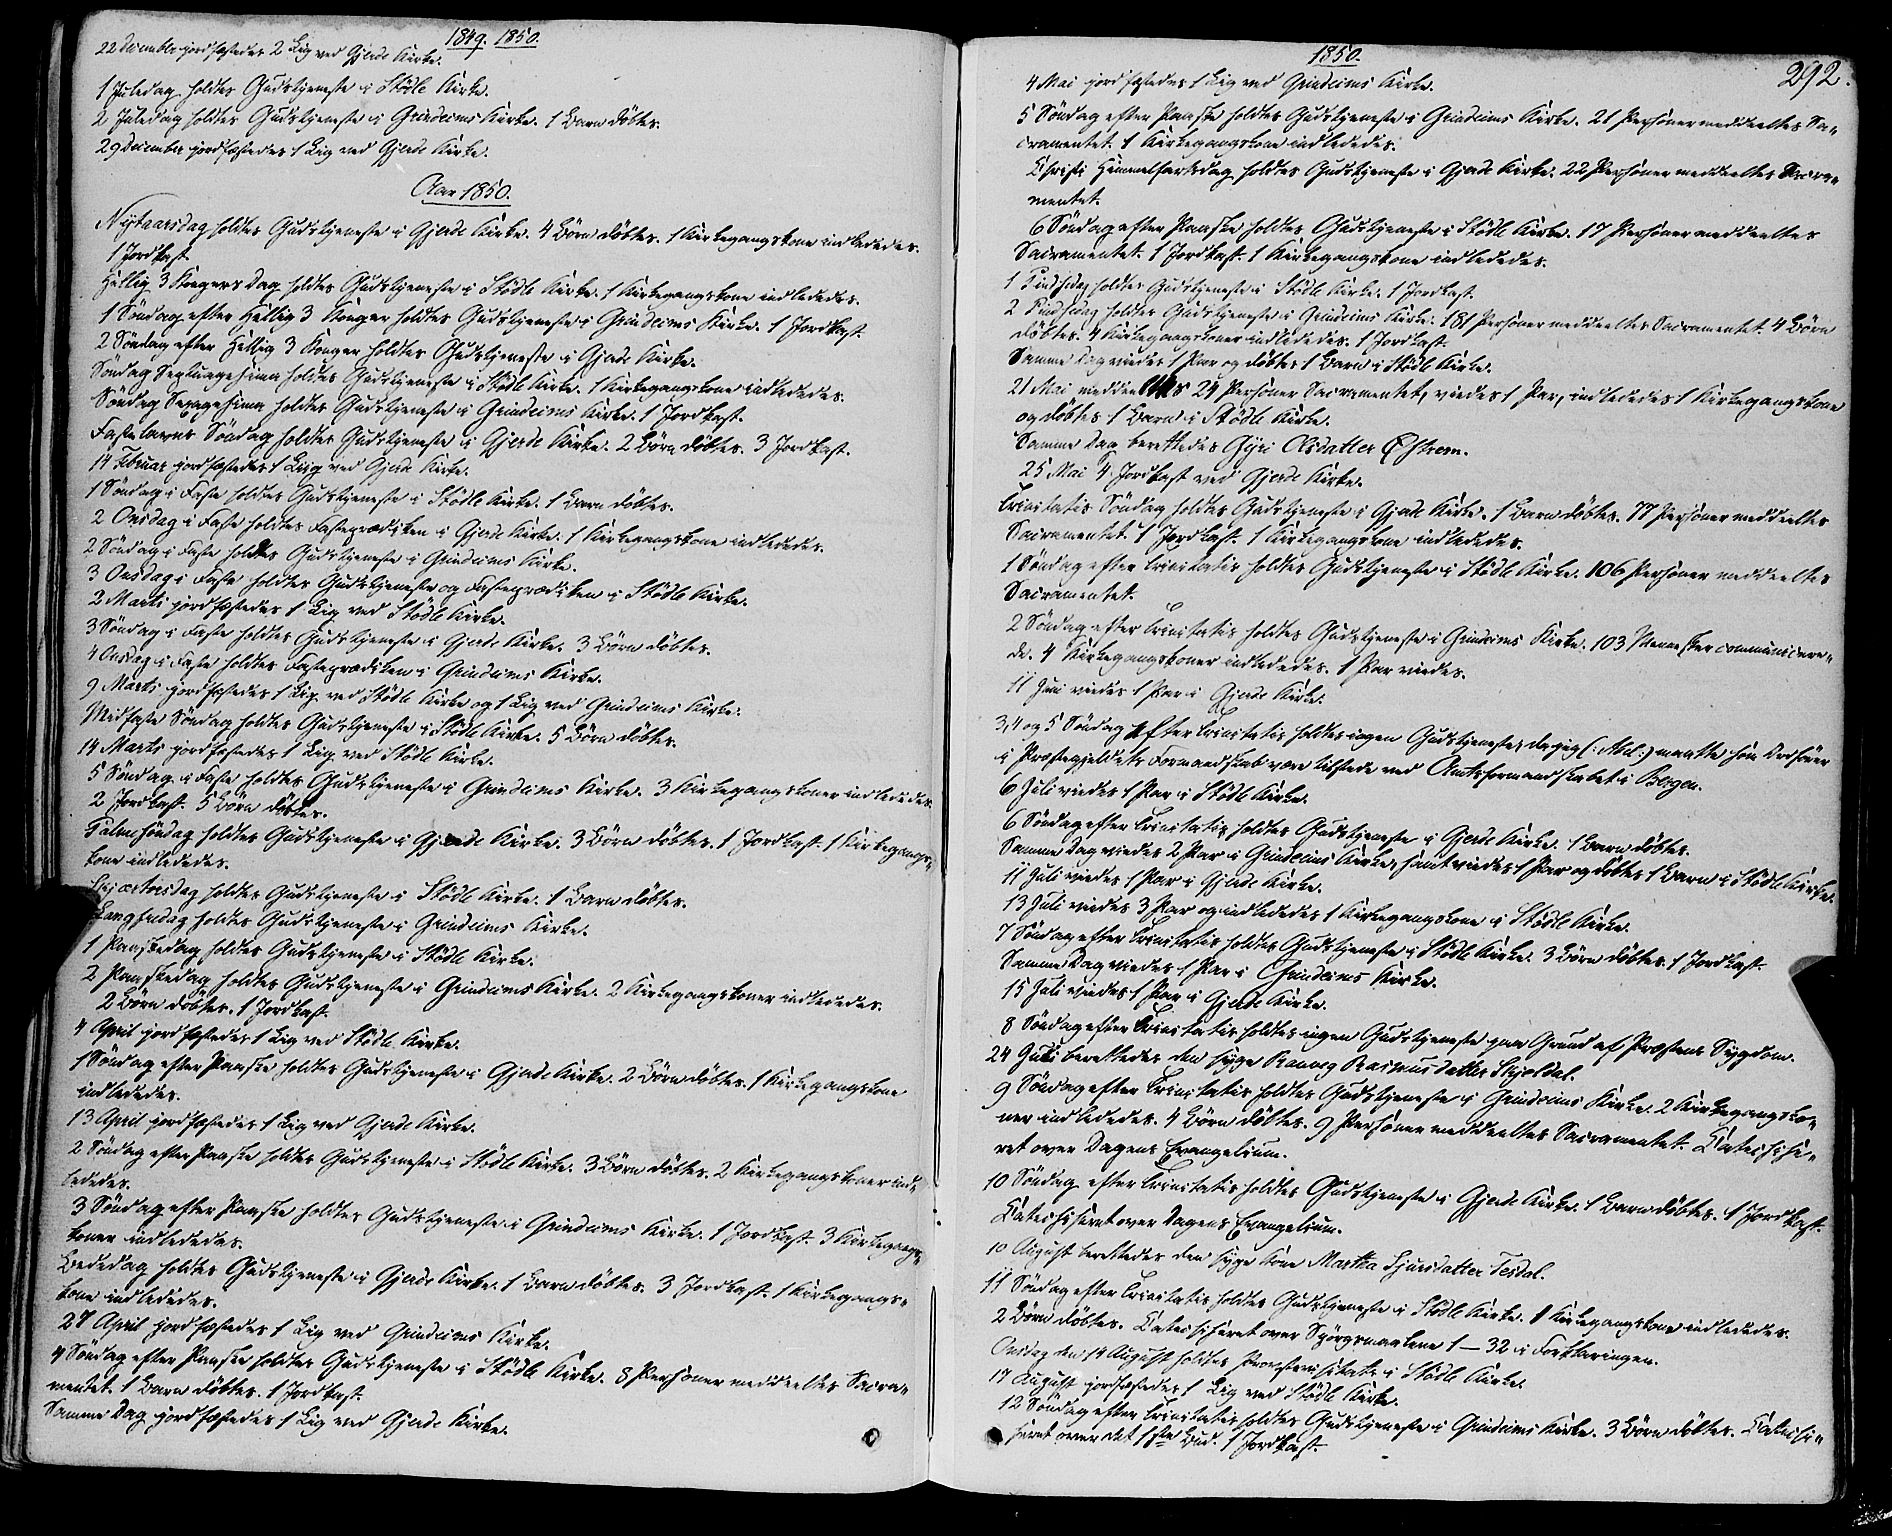 1849. 1850.
22 December jordfæstedes 2 Lig ved Gjerde Kirke.
1 Juledag holdtes Gudstjeneste i Stödle Kirke.
2 Juledag holdtes Gudstjeneste i Grindeims Kirke. 1 Barn döbtes.
29 December jordfæstedes 1 Lig ved Gjerde Kirke.
Aar 1850.
Nytaarsdag holdtes Gudstjeneste i Gjerde Kirke. 4 Börn döbtes. 1 Kirkegangskone indlededes.
1 Jordkast.
Hellig 3 Kongers Dag holdtes Gudstjeneste i Stödle Kirke. 1 Kirkegangskone indlededes.
1 Söndag efter Hellig 3 Konger holdtes Gudstjeneste i Grindeims Kirke. 1 Jordkast.
2 Söndag efter Hellig 3 Konger holdtes Gudstjeneste i Gjerde Kirke.
Söndag Septuagesima holdtes Gudstjeneste i Stödle Kirke. 1 Kirkegangskone indlededes.
Söndag Sexagesima holdtes Gudstjeneste i Grindeims Kirke. 1 Jordkast.
Fastelavns Söndag holdtes Gudstjeneste i Gjerde Kirke. 2 Börn döbtes. 3 Jordkast.
14 Februar jordfæstedes 1 Lig ved Gjerde Kirke.
1 Söndag i Faste holdtes Gudstjeneste i Stödle Kirke. 1 Barn döbtes.
2 Onsdag i Faste holdtes Fasteprædiken i Gjerde Kirke. 1 Kirkegangskone indlededes.
2 Söndag i Faste holdtes Gudstjeneste i Grindeims Kirke.
3 Onsdag i Faste holdtes Gudstjeneste og Fasteprædiken i Stödle Kirke.
2 Marts jordfæstedes 1 Lig ved Stödle Kirke.
3 Söndag i Faste holdtes Gudstjeneste i Gjerde Kirke. 3 Börn döbtes.
4 Onsdag i Faste holdtes Fasteprædiken i Grindeims Kirke.
9 Marts jordfæstedes 1 Lig ved Stödle Kirke og 1 Lig ved Grindeims Kirke.
Midfaste Söndag holdtes Gudstjeneste i Stödle Kirke. 5 Börn döbtes.
14 Marts jordfæstedes 1 Lig ved Stödle Kirke.
5 Söndag i Faste holdtes Gudstjeneste i Grindeims Kirke. 3 Kirkegangskoner indlededes.
2 Jordkast. 5 Börn döbtes.
Palmesöndag holdtes Gudstjeneste i Gjerde Kirke. 3 Börn döbtes. 1 Jordkast. 1 Kirkegangs-
kone indlededes.
Skjærtorsdag holdtes Gudstjeneste i Stödle Kirke. 1 Barn döbtes.
Langfredag holdtes Gudstjeneste i Grindeims Kirke.
1 Paaskedag holdtes Gudstjeneste i Stödle Kirke.
2 Paaskedag holdtes Gudstjeneste i Grindeims Kirke. 2 Kirkegangskoner indlededes.
2 Börn döbtes. 1 Jordkast.
4 April jordfæstedes 1 Lig ved Stödle Kirke.
1 Söndag efter Paaske holdtes Gudstjeneste i Gjerde Kirke. 2 Börn döbtes. 1 Kirkegangskone
indlededes.
13 April jordfæstedes 1 Lig ved Gjerde Kirke.
2 Söndag efter Paaske holdtes Gudstjeneste i Stödle Kirke. 3 Börn döbtes. 2 Kirkegangskoner ind-
lededes.
3 Söndag efter Paaske holdtes Gudstjeneste i Grindeims Kirke. 1 Jordkast. 3 Kirkegangs-
koner indlededes.
Bededag holdtes Gudstjeneste i Gjerde Kirke. 1 Barn döbtes. 3 Jordkast. 1 Kirkegangs-
kone indlededes.
27 April jordfæstedes 1 Lig ved Grindeims Kirke.
4 Söndag efter Paaske holdtes Gudstjeneste i Stödle Kirke. 8 Personer meddeeltes Sacra-
mentet. 1 Barn döbtes. 1 Jordkast.
Samme Dag jordfæstedes 1 Lig ved Gjerde Kirke.
1850.
292.
4 Mai jordfæstedes 1 Lig ved Grindeims Kirke.
5 Söndag efter Paaske holdtes Gudstjeneste i Grindeims Kirke. 21 Personer meddeeltes Sa-
cramentet. 1 Kirkegangskone indlededes.
Christi Himmelfartsdag holdtes Gudstjeneste i Gjerde Kirke. 22 Personer meddeeltes Sacra-
mentet.
6 Söndag efter Paaske holdtes Gudstjeneste i Stödle Kirke. 17 Personer meddeeltes
Sacramentet. 1 Jordkast. 1 Kirkegangskone indlededes.
1 Pindsedag holdtes Gudstjeneste i Stödle Kirke. 1 Jordkast.
2 Pindsedag holdtes Gudstjeneste i Grindeims Kirke. 181 Personer meddeeltes Sacramentet. 4 Börn
döbtes. 4 Kirkegangskoner indlededes. 1 Jordkast.
Samme Dag viedes 1 Par og döbtes 1 Barn i Stödle Kirke.
21 Mai meddeeltes 24 Personer Sacramentet, viedes 1 Par, indlededes 1 Kirkegangskone
og döbtes 1 Barn i Stödle Kirke.
Samme Dag berettedes Gyri Olsdatter Østrem.
25 Mai 4 Jordkast ved Gjerde Kirke.
Trinitatis Söndag holdtes Gudstjeneste i Gjerde Kirke. 1 Barn döbtes. 77 Personer meddeeltes
Sacramentet. 1 Jordkast. 1 Kirkegangskone indlededes.
1 Söndag efter Trinitatis holdtes Gudstjeneste i Stödle Kirke. 106 Personer meddeeltes
Sacramentet.
2 Söndag efter Trinitatis holdtes Gudstjeneste i Grindeims Kirke. 103 Mennesker communicere-
de. 4 Kirkegangskoner indlededes. 1 Par viedes.
11 Juni viedes 1 Par i Gjerde Kirke.
3, 4 og 5 Söndag efter Trinitatis holdtes ingen Gudstjeneste, da jeg maatte som Ordförer
i Præstegjeldets Formandskab være tilstede ved Amtsformandskabet i Bergen.
6 Juli viedes 1 Par i Stödle Kirke.
6 Söndag efter Trinitatis holdtes Gudstjeneste i Gjerde Kirke. 1 Barn döbtes.
Samme Dag viedes 2 Par i Grindeims Kirke, samt viedes 1 Par og döbtes 1 Barn i Stödle Kirke.
11 Juli viedes 1 Par i Gjerde Kirke.
13 Juli viedes 3 Par og indlededes 1 Kirkegangskone i Stödle Kirke.
7 Söndag efter Trinitatis holdtes Gudstjeneste i Stödle Kirke. 3 Börn döbtes. 1 Jordkast.
Samme Dag viedes 1 Par i Grindeims Kirke.
15 Juli viedes 1 Par i Gjerde Kirke.
8 Söndag efter Trinitatis holdtes ingen Gudstjeneste paa Grund af Præstens Sygdom.
24 Juli berettedes den syge Ranveg Rasmusdatter Skjoldal.
9 Söndag efter Trinitatis holdtes Gudstjeneste i Grindeims Kirke. 2 Kirkegangsko-
ner indlededes. 4 Börn döbtes. 9 Personer meddeeltes Sacramentet. Catechise-
ret over Dagens Evangelium.
10 Söndag efter Trinitatis holdtes Gudstjeneste i Gjerde Kirke. 1 Barn döbtes. 1 Jordkast.
Catechiseret over Dagens Evangelium.
10 August berettedes den syge Kone Martha Sjursdatter Tesdal.
11 Söndag efter Trinitatis holdtes Gudstjeneste i Stödle Kirke. 1 Kirkegangskone indlededes.
2 Börn döbtes. Catechiseret over Spörgsmaalene 1 – 32 i Forklaringen.
Onsdag den 14 August holdtes Provstevisitats i Stödle Kirke.
17 August jordfæstedes 1 Lig ved Stödle Kirke.
12 Söndag efter Trinitatis holdtes Gudstjeneste i Grindeims Kirke. 3 Börn döbtes. Catechi-
seret over det 1ste Bud. 1 Jordkast.